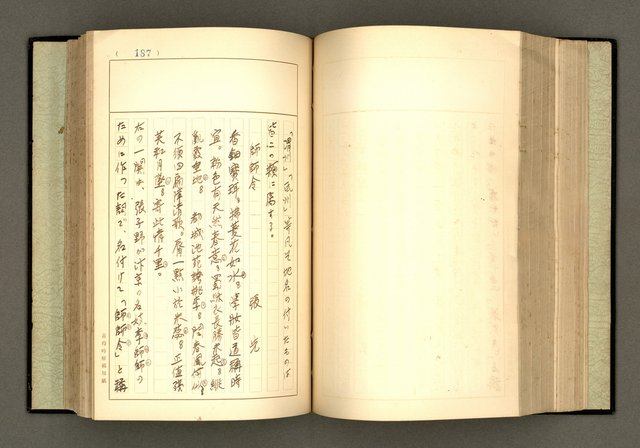 ( 187 )
「」、「瓜州」等凡そ地名の付いたものは
皆この類に属する。
師師令　張先
香鈿寶珥。拂菱花如水。學妝皆道稱時
宜。粉色有天然春意。蜀綵衣長勝未起。縱
亂霞垂地。　都城池苑誇桃李。問春風何似。
不須回扇障清歌。唇一點小於朱蕊。正值殘
英和月墜。寄此情千里。
右の一闋は、張子野が汴京の名妓李師師の
ために作つた詞で、名付けて「師師令」と稱